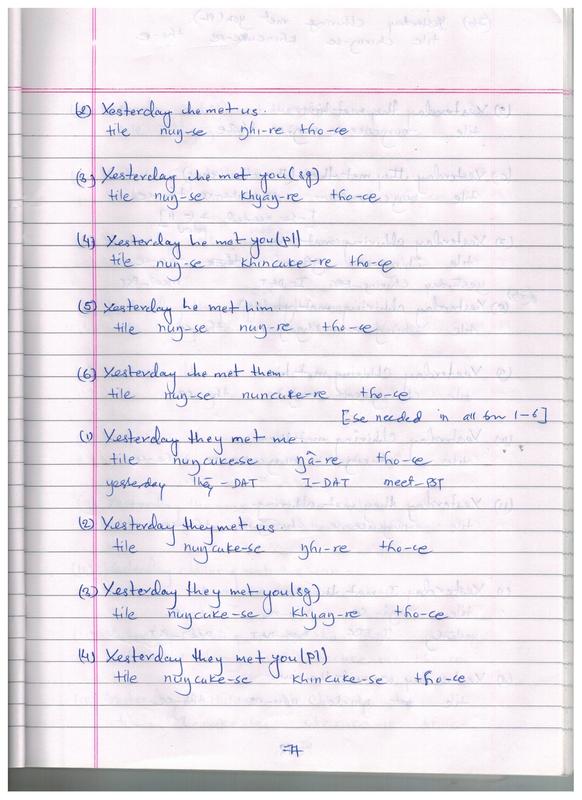 (2) Yesterday he met us.
tile nuŋ-se ŋhi-re tho-ce
(3) Yesterday he met you(sg)
tile nuŋ-se khyaŋ-re tho-ce
(4) Yesterday he met you(pl)
tile nuŋ-se khincuke-re tho-ce
(5) Yesterday he met him
tile nuŋ-se nuŋ-re tho-ce
(6) Yesterday he met them
tile nuŋ-se nuncuke-re tho-ce
[se needed in all for 1-6]
(1) Yesterday they met me.
tile nuŋcukese ŋâ-re tho-ce
yesterday They-DAT I-DAT meet-PST
(2) Yesterday they met us.
tile nuŋcuke-se ŋhi-re tho-ce
(3) Yesterday they met you(sg)
tile nuŋcuke-se khyaŋ-re tho-ce
(4) Yesterday they met you(pl)
tile nuŋcuke-se khincuke-se tho-ce